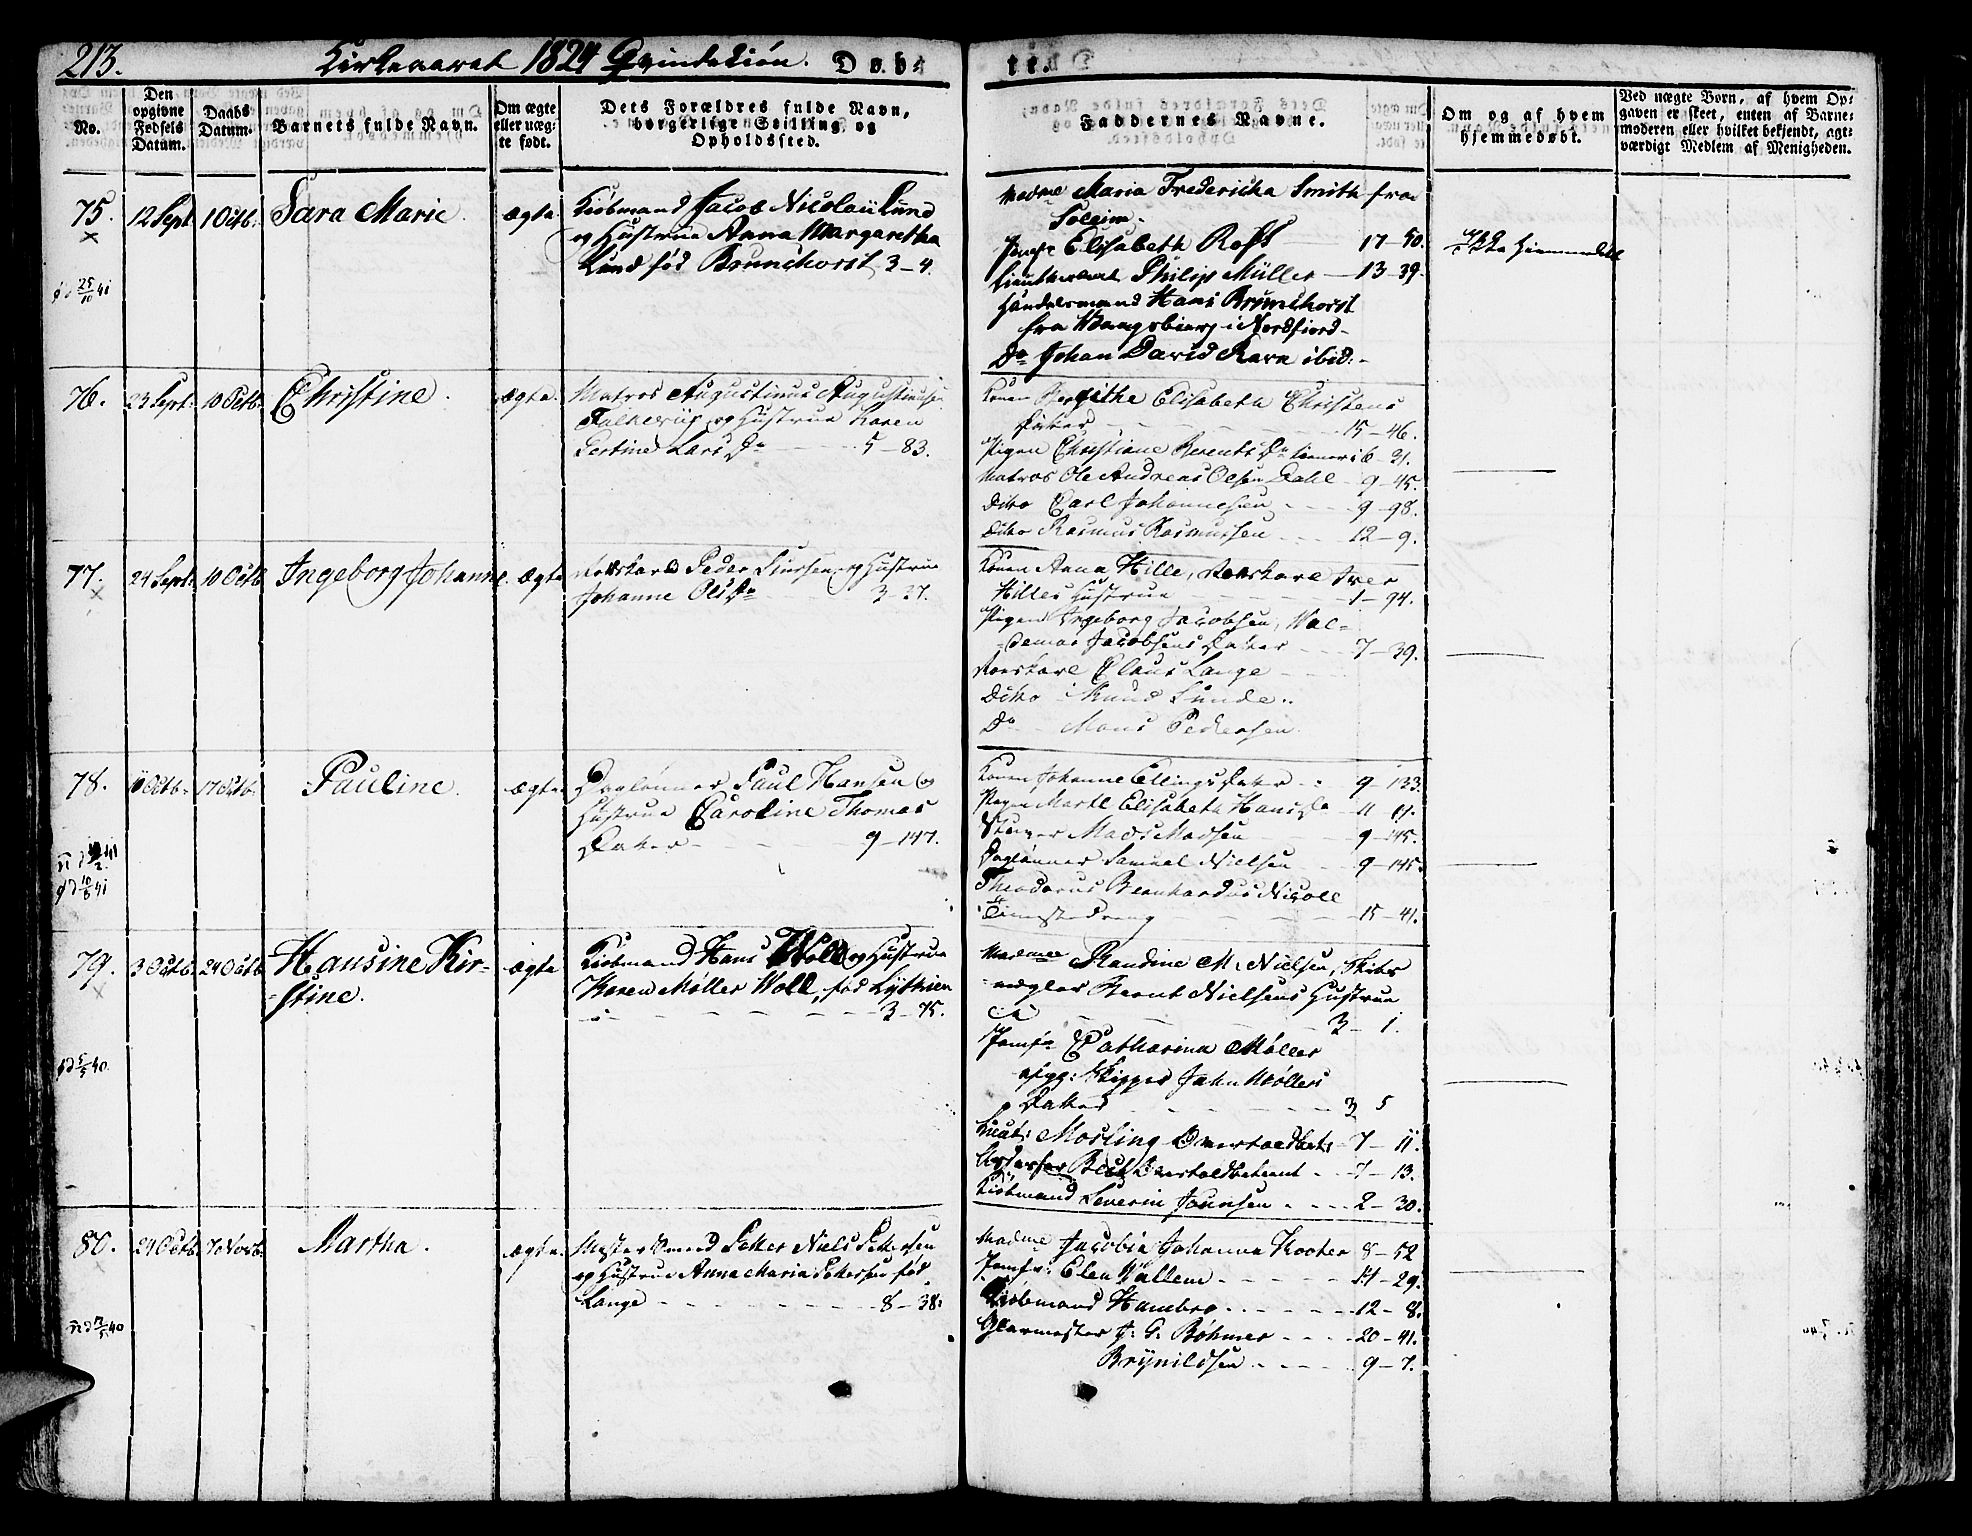 213.
Kirkeaaret 1824 Qvindekiøn.
Døbte.
No.
Den opgivne Fødsels Datum.
Daabs Datum.
Barnets fulde Navn.
Om ægte eller uægte født.
Dets Forældres fulde Navn, borgerlige Stilling, og Opholdssted.
Faddernes Navne.
Om og af hvem hjemmedøbt.
Ved uægte Børn, af hvem Opgaven er skeet, enten af Barnemoderen eller hvilket bekjendt, agtværdigt Medlem af Menigheden.
75.
12 Sept
1 Octb.
Sara Marie.
ægte
Kiøbmand Jacob Nicolaii Lund
og Hustrue Anna Margaretha
Lund fød Brunchorst 3-4.
Madme Maria Fredericka Smith fra
Soleim.
Jomfr Elisabeth Roft 17-50.
Lieutnant Philip Müller 13-39.
Handelsmand Hans Brunchorst
fra Waagsbierg i Nordfiord-
Do Johan David Ravn ibid:
Ikke hiemmedøbt
25/10 41
76.
23 Sept.
10 Octb.
Christine.
ægte.
Matros Augustinus Augustinusen
Falkevig og Hustrue Karen
Gertine Lars Dr 5-83.
Konen Bergithe Elisabeth Christens
Datter 15-46.
Pigen Christiane Berents Dr 6-21.
Matros Ole Andreas Olsen Dahl 9-45.
Ditto Carl Johannesen 9-98.
Ditto Rasmus Rasmussen 12-9.
77.
24 Sept.
10 Octb
Ingeborg Johanne.
ægte
Peder Siursen og Hustrue
Johanne Ols Dr 3-27.
Konen Anna Hille, Iver
Hilles Hustrue 1-94.
Pigen Ingeborg Jacobsen, Wal-
demar Jacobsens Datter 7-39.
Claus Lange
Ditto Knud Sunde
Do Mons Pedersen.
78.
Octb.
17 Octb.
Pauline.
ægte.
Dagleonner Paul Hansen og
Hustrue Caroline Thomas
Datter 9-147.
Konen Johanne Ellings Datter 9-133.
Pigen Marte Elisabeth Hans Dr 11-11.
Mads Madsen 9-145.
Daglønner Samuel Nielsen 9-145.
Theodorus Bernhardus Nicoll
Tienestedreng 15-41.
79.
3 Octb.
24 Octb
Hansine Kir-
stine.
ægte
Kiøbmand Hans Woll og Hustrue
Karen Møller Woll, fød Lythien
3-45.
Madme Randine M. Nielsen, Skibs
mægler Bernt Nielsens Hustrue
3-1.
Jomfr Catharina Møller
afgg: Skipper John Møllers
Datter 3 5
Lieut: Mosling Overtoldbet: 7-11.
Overtoldbetient 7-13.
Kiøbmand Severin Jounsen 2-30.
5/5 40
80.
29 Octb
7 Novb.
Martha.
ægte.
Mestersmed Peter Niels Petersen
og Hustrue Anna Maria Petersen fød
Lange 8-38.
Madme Jacobia Johanna Kooter 8-52
Jomfr: Elen Wallem 14-29.
Kiøbmand Hambro 12-8.
Glarmester J. G. Bøhmer 20-41.
Brynildsen 9-7.